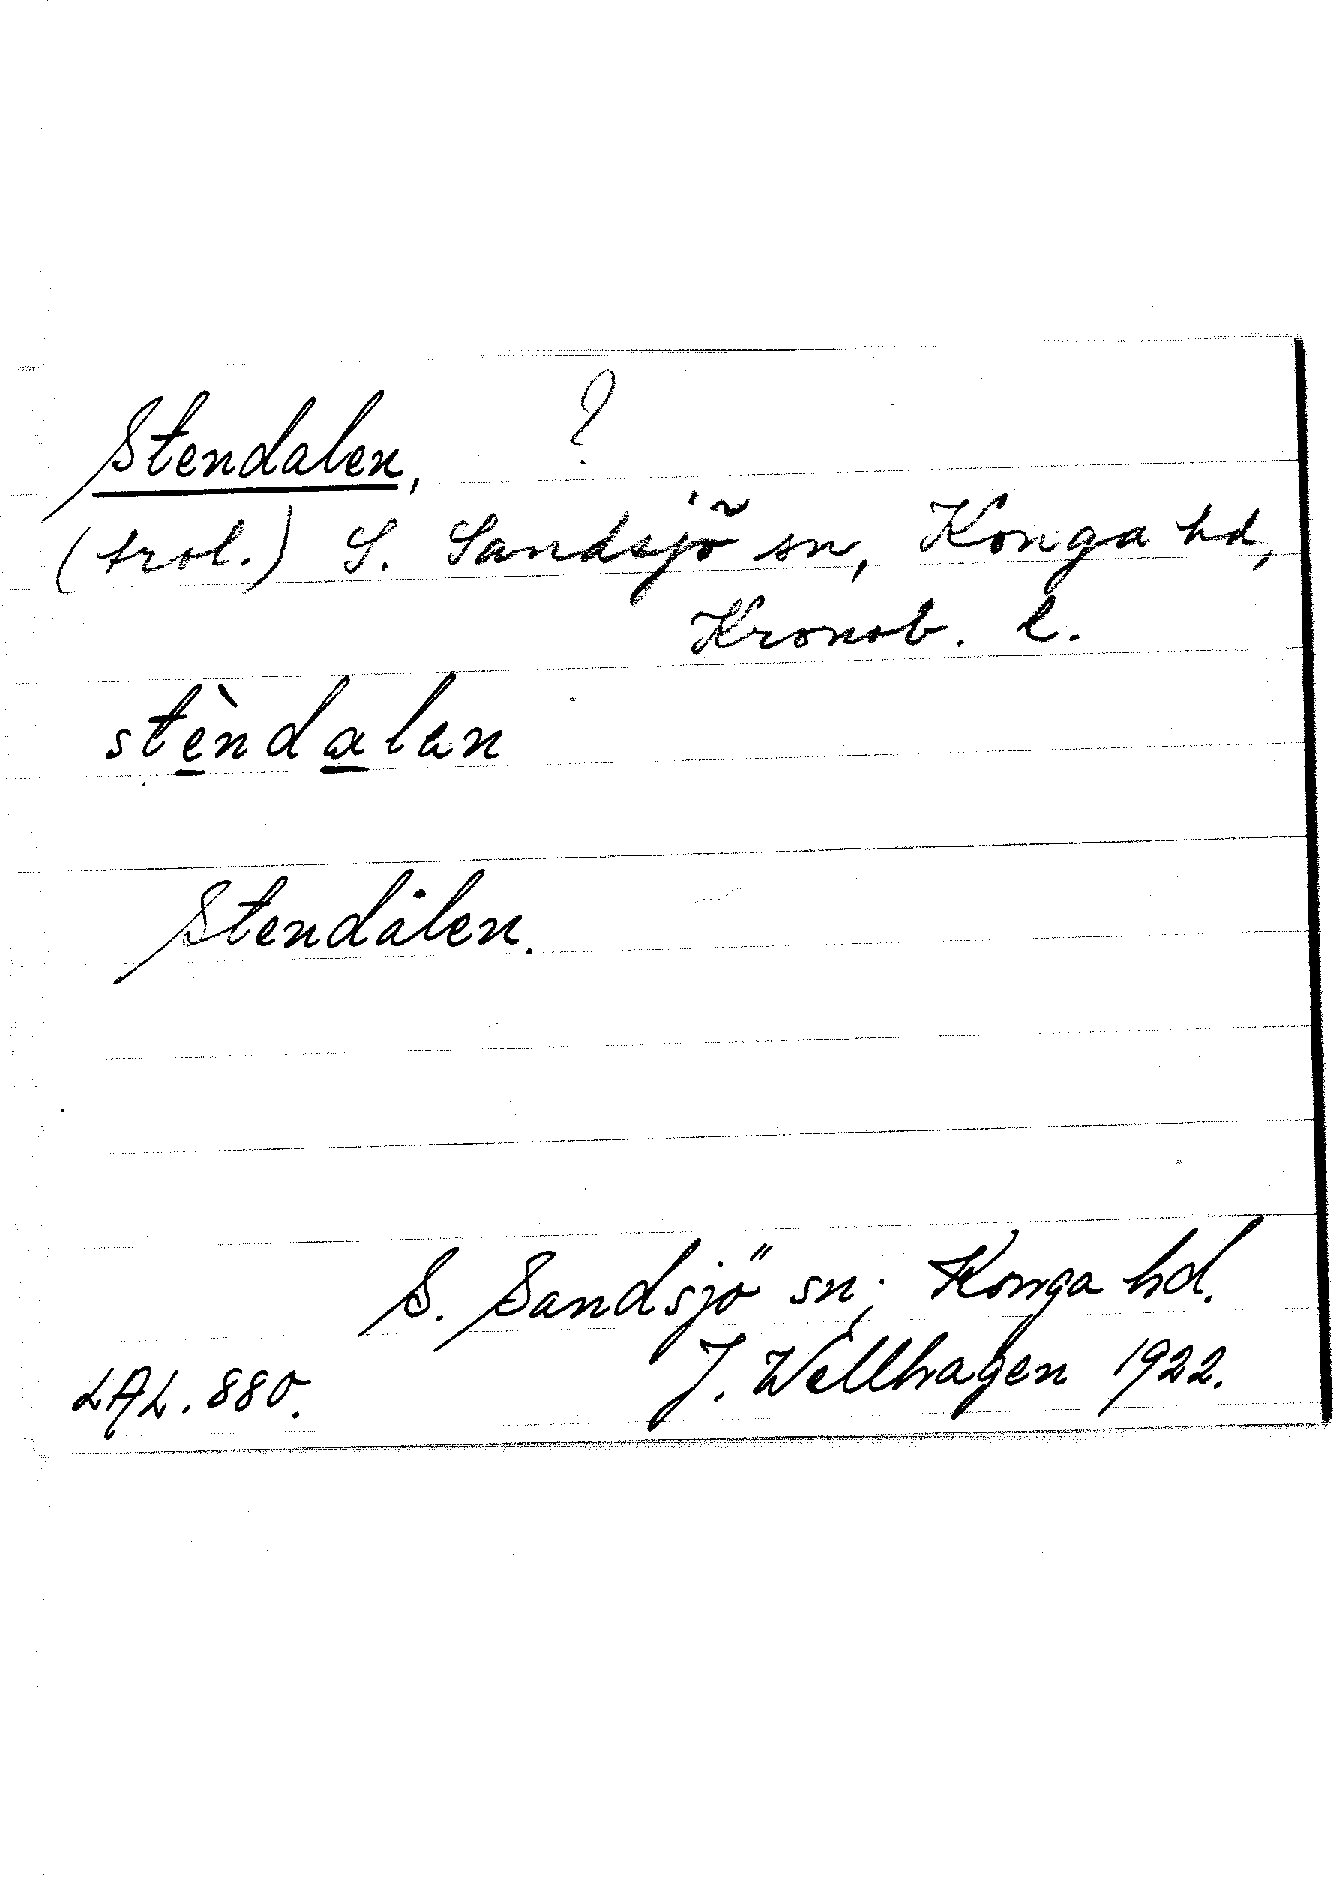 Stendalen, ?
(trol.) S. Sandsjö sn, Konga hd,
Kronob. l.
stèndalan
Stendålen.
S. Sandsjö sn; Konga hd.
J. Wellhagen 1922.
LAL. 880.